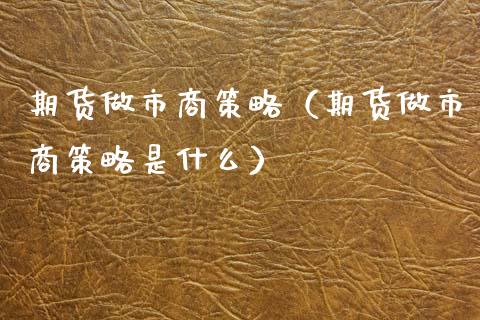 期货做市商策略（期货做市
商策略是什么）